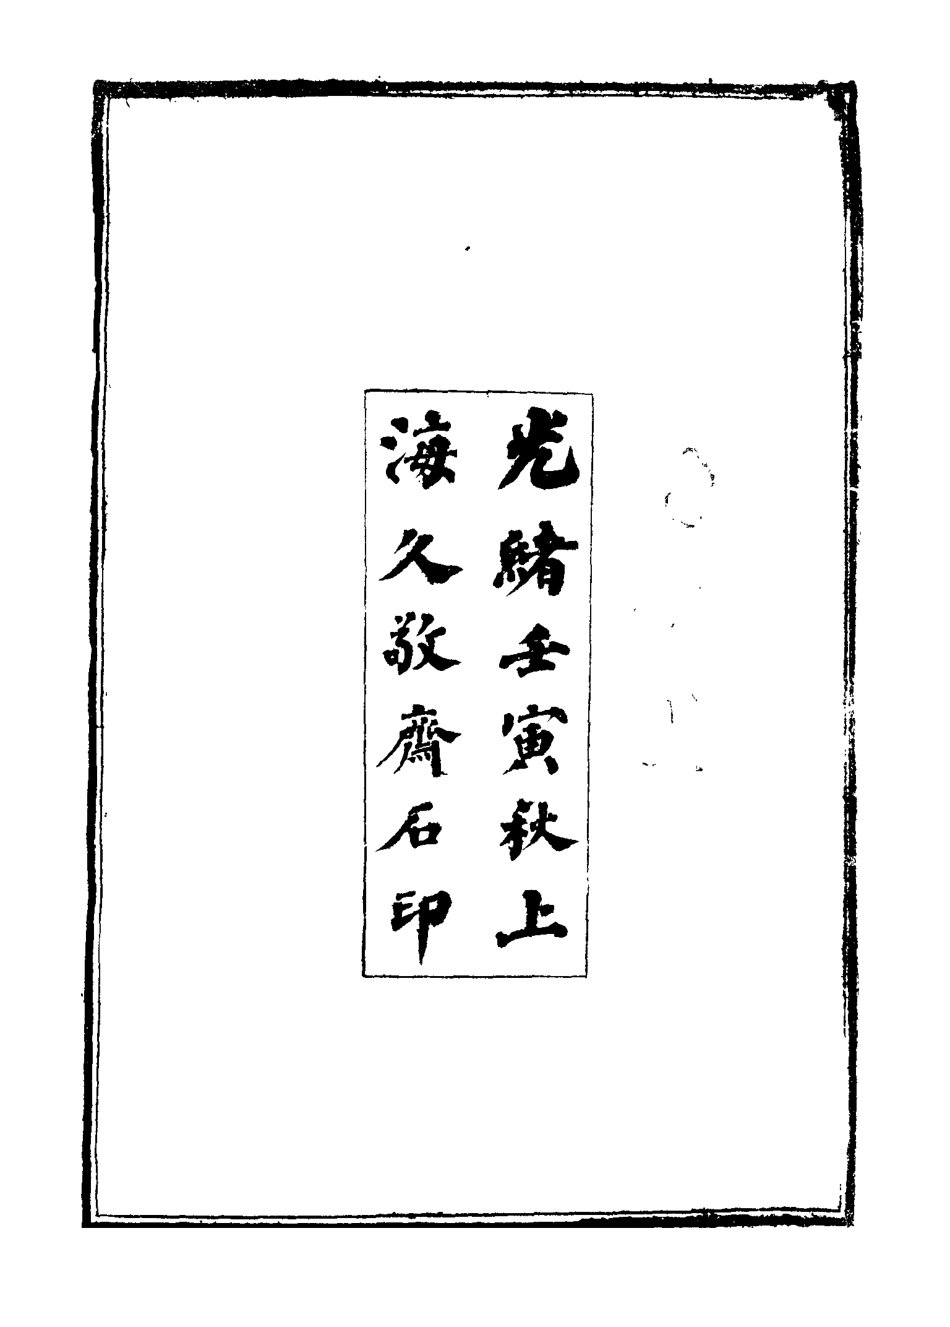 光緒壬寅秋上
海久敬齋石印